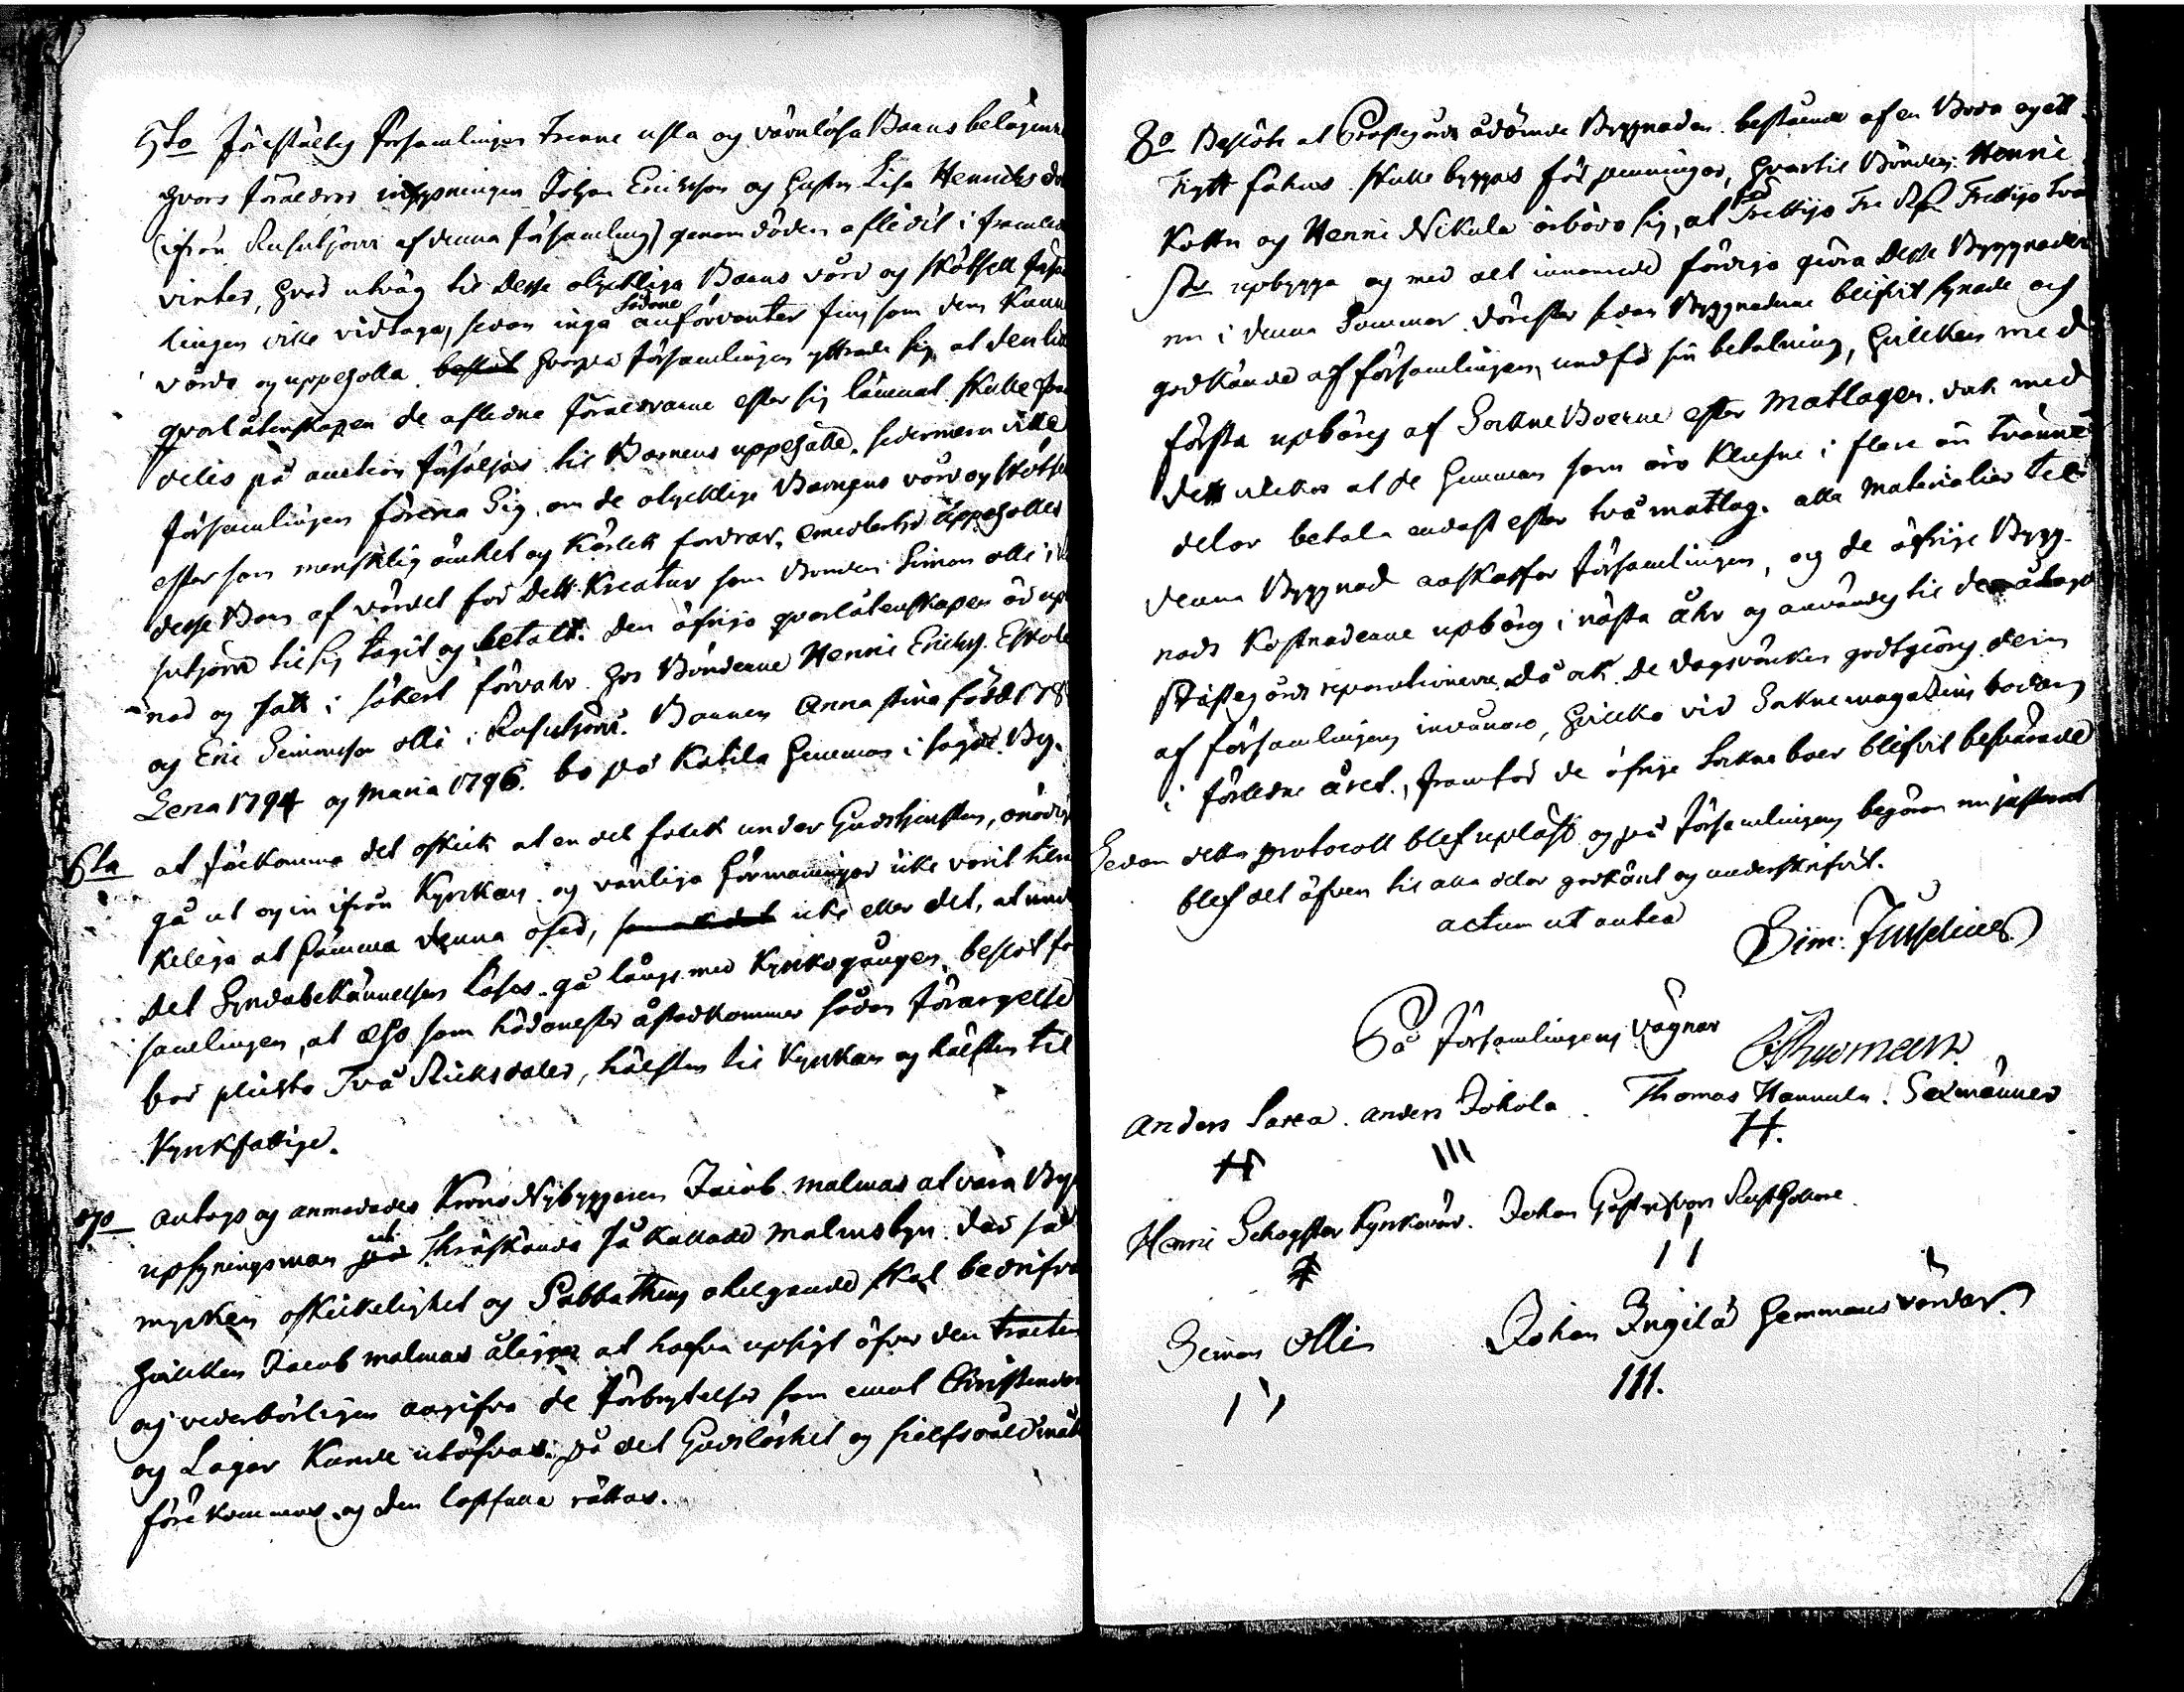 5to Förestältes församlingen trenne usla og värnlösa Barns belägen
hvars föräldrar inhysningen Johan Erichsson og hustru Lisa Henrichs do
(ifrån Rusutjärvi af denna församling) genom döden aflidit i framled
vinter, hvad utväg til desse olyckliga Barns vård og skötsell försa
lingen ville vidtaga, sedan inga sådane anförvanter fins som dem kunn
vårda og uppehålla hvarpå församlingen yttrade sig, at den li
qvarlåtenskapen de aflidne föräldrarne efter sig lämnat skulle
deles på auction försäljas til Barnens uppehälle. sedermera ville
församlingen förena sig, om de olycklige Barnens vård og skötse
efter som mensklig ömhet og kärlek fordrar, emedlertid uppehålles
desse Barn af värdet för dett Kreatur som Bonden Simon Olli i
sutjärvi til sig tagit og betalt. den öfriga qvarlåtenskapen är up
nad og satt i säkert förvahr hos Bönderne Henric Erichss. Eskola
og Eric Simonsson Olli i Rusutjärvi. Barnen Anna Stina född 178
Lena 1794 og Maria 1796. bo på Katila Hemman i sagde By.
6ta at förekomma det oskick at en del folck under Gudstjensten, onödig
gå ut og in ifrån Kyrkan, og vänliga förmaningar icke varit till
keliga at hämma denna osed, icke eller det, at und
det Syndabekännelsen läses, gå längs med Kyrkogången, beslöt för
samlingen, at den som hädanefter åstadkommer sådan förargelse
bör plickta Två Riksdaler, hälften til Kyrkan og hälften til
Kyrkfattige.
7o antogs og anmodades Krono Nybyggaren Jacob Malmas at vara By
upsyningsman uti Thräskända så kallade Malmsbyn der så
mycken oskickelighet og Sabbathens ohelgande skal bedrifva
hvilcken Jacob Malmas ålägges at hafva upsigt öfver den tracten
og vederbörligen angifva de förbrytelser som emot Christendom
og Lagar kunde utöfvas: på det Gudslöshet og sielfsvåld måt
förekommas og den lastfulle rättas.
8o Beslöts at Prästegårds ådömde Byggnaden bestående af en Boda og ett
Rytt fähus skulle byggas för penningar, hvartil Bönder Henric
Kottu og Henric Nikula erbödo sig, at för Trettijo Tre Rd Trettijo två
s. upbygga og med alt innanrede färdiga giöra desse Byggnader
nu i denna Sommar. derefter sedan Byggnaderne blifvit synade och
godkände af församlingen, undfå sin betalning, hvilcken med
första upbäres af Sockne Boerne efter Matlagen. dock med
dett vilkor at de Hemman som äro klufne i flere än tvänne
delar betala endast efter två matlag. alla Materialier til
denna Byggnad anskaffar församlingen, og de öfrige Bygg-
nads kostnaderne upbäres i nästa åhr og användes til de åtagne
Prästegårds reparationerne, då ock de dagsvärken godtgiöres dem
af församlingens invånare, hvilcka vid Sockne magazins bodan
i förledne året, framför de öfrige Sockne boer blifvit besvärade
Sedan detta protocoll blef upläst og på församlingens begäran nu justerat
blef det äfven til alla delar godkänt og underskrifvit.
actum ut antea
Sim: Juselius
På församlingens vägnar
Anders Sarca. Anders Jokela Thomas Hannula. Sexmänner
Henric Schogster Kyrkovärd. Johan Gustafsson Rusthållare
Simon Olli Johan Ingilä Hemmansvårdar.